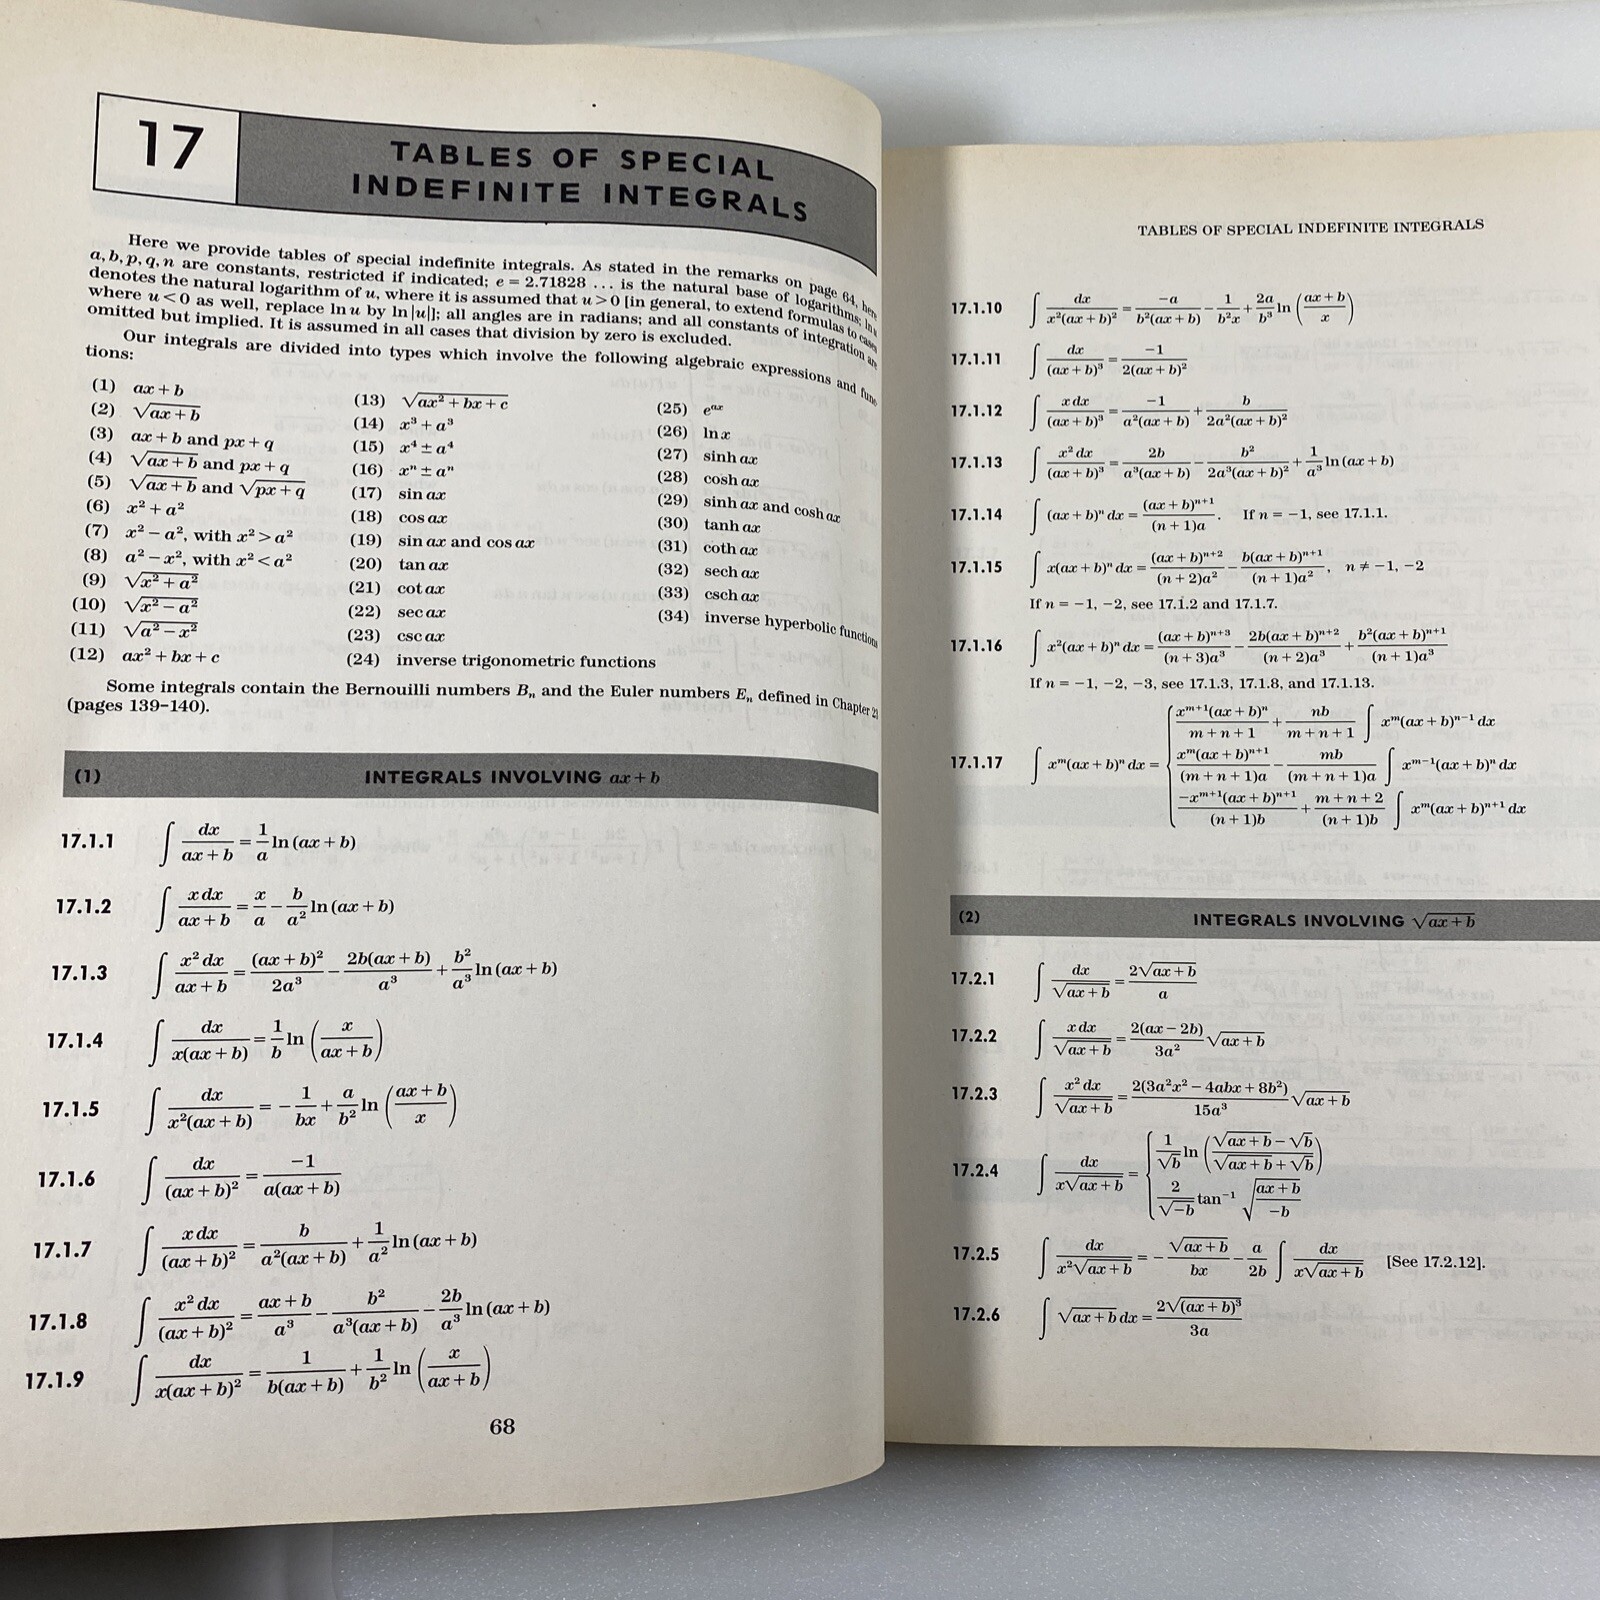 17
TABLES OF SPECIAL
INDEFINITE INTEGRALS
Here we provide tables of special indefinite integrals. As stated in the remarks on page 64, here
a, b, p, q, n are constants, restricted if indicated; e = 2.71828 ... is the natural base of logarithms; ln u
denotes the natural logarithm of u, where it is assumed that u > 0 [in general, to extend formulas to cases
where u < 0 as well, replace ln u by ln |u|]; all angles are in radians; and all constants of integration are
omitted but implied. It is assumed in all cases that division by zero is excluded.
Our integrals are divided into types which involve the following algebraic expressions and func-
tions:
(1) ax + b
(2) √(ax + b)
(3) ax + b and px + q
(4) √(ax + b) and px + q
(5) √(ax + b) and √(px + q)
(6) x² + a²
(7) x² − a², with x² > a²
(8) a² − x², with x² < a²
(9) √(x² + a²)
(10) √(x² − a²)
(11) √(a² − x²)
(12) ax² + bx + c
(13) √(ax² + bx + c)
(14) x³ + a³
(15) x⁴ ± a⁴
(16) xⁿ ± aⁿ
(17) sin ax
(18) cos ax
(19) sin ax and cos ax
(20) tan ax
(21) cot ax
(22) sec ax
(23) csc ax
(24) inverse trigonometric functions
(25) e^(ax)
(26) ln x
(27) sinh ax
(28) cosh ax
(29) sinh ax and cosh ax
(30) tanh ax
(31) coth ax
(32) sech ax
(33) csch ax
(34) inverse hyperbolic functions
Some integrals contain the Bernouilli numbers Bₙ and the Euler numbers Eₙ defined in Chapter 23
(pages 139–140).
(1) INTEGRALS INVOLVING ax + b
17.1.1 ∫ dx/(ax + b) = (1/a) ln (ax + b)
17.1.2 ∫ x dx/(ax + b) = x/a − (b/a²) ln (ax + b)
17.1.3 ∫ x² dx/(ax + b) = (ax + b)²/(2a³) − 2b(ax + b)/a³ + (b²/a³) ln (ax + b)
17.1.4 ∫ dx/(x(ax + b)) = (1/b) ln (x/(ax + b))
17.1.5 ∫ dx/(x²(ax + b)) = −1/(bx) + (a/b²) ln ((ax + b)/x)
17.1.6 ∫ dx/(ax + b)² = −1/(a(ax + b))
17.1.7 ∫ x dx/(ax + b)² = b/(a²(ax + b)) + (1/a²) ln (ax + b)
17.1.8 ∫ x² dx/(ax + b)² = (ax + b)/a³ − b²/(a³(ax + b)) − (2b/a³) ln (ax + b)
17.1.9 ∫ dx/(x(ax + b)²) = 1/(b(ax + b)) + (1/b²) ln (x/(ax + b))
68
TABLES OF SPECIAL INDEFINITE INTEGRALS
17.1.10 ∫ dx/(x²(ax + b)²) = −a/(b²(ax + b)) − 1/(b²x) + (2a/b³) ln ((ax + b)/x)
17.1.11 ∫ dx/(ax + b)³ = −1/(2(ax + b)²)
17.1.12 ∫ x dx/(ax + b)³ = −1/(a²(ax + b)) + b/(2a²(ax + b)²)
17.1.13 ∫ x² dx/(ax + b)³ = 2b/(a³(ax + b)) − b²/(2a³(ax + b)²) + (1/a³) ln (ax + b)
17.1.14 ∫ (ax + b)ⁿ dx = (ax + b)ⁿ⁺¹/((n + 1)a). If n = −1, see 17.1.1.
17.1.15 ∫ x(ax + b)ⁿ dx = (ax + b)ⁿ⁺²/((n + 2)a²) − b(ax + b)ⁿ⁺¹/((n + 1)a²), n ≠ −1, −2
If n = −1, −2, see 17.1.2 and 17.1.7.
17.1.16 ∫ x²(ax + b)ⁿ dx = (ax + b)ⁿ⁺³/((n + 3)a³) − 2b(ax + b)ⁿ⁺²/((n + 2)a³) + b²(ax + b)ⁿ⁺¹/((n + 1)a³)
If n = −1, −2, −3, see 17.1.3, 17.1.8, and 17.1.13.
17.1.17 ∫ xᵐ(ax + b)ⁿ dx = { xᵐ⁺¹(ax + b)ⁿ/(m + n + 1) + nb/(m + n + 1) ∫ xᵐ(ax + b)ⁿ⁻¹ dx
xᵐ(ax + b)ⁿ⁺¹/((m + n + 1)a) − mb/((m + n + 1)a) ∫ xᵐ⁻¹(ax + b)ⁿ dx
−xᵐ⁺¹(ax + b)ⁿ⁺¹/((n + 1)b) + (m + n + 2)/((n + 1)b) ∫ xᵐ(ax + b)ⁿ⁺¹ dx
(2) INTEGRALS INVOLVING √(ax + b)
17.2.1 ∫ dx/√(ax + b) = 2√(ax + b)/a
17.2.2 ∫ x dx/√(ax + b) = (2(ax − 2b)/(3a²)) √(ax + b)
17.2.3 ∫ x² dx/√(ax + b) = (2(3a²x² − 4abx + 8b²)/(15a³)) √(ax + b)
17.2.4 ∫ dx/(x√(ax + b)) = { (1/√b) ln ((√(ax + b) − √b)/(√(ax + b) + √b))
(2/√−b) tan⁻¹ √((ax + b)/−b)
17.2.5 ∫ dx/(x²√(ax + b)) = −√(ax + b)/(bx) − (a/2b) ∫ dx/(x√(ax + b)) [See 17.2.12].
17.2.6 ∫ √(ax + b) dx = 2√((ax + b)³)/(3a)